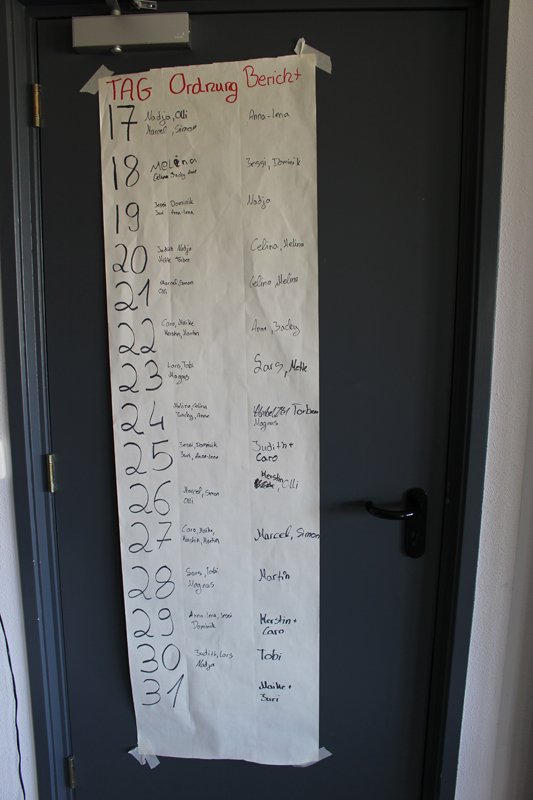 TAG Ordnung Bericht
17 Nadja, Olli Anna-Lena
Marcel, Simon
18 Melina Jessi, Dominik
Celina Jacky Anne
19 Jessi Dominik Nadja
Juri Anna-Lena
20 Judith Nadja Celina, Melina
Torben
21 Marcel, Simon Celina, Melina
Olli
22 Caro, Maike Anne, Jacky
Kerstin, Martin
23 Lars, Tobi Lars,
Magnus
24 Melina, Celina Torben
Jacky, Anne Magnus
25 Jessi, Dominik Judith +
Juri, Anna-Lena Caro
26 Marcel, Simon Kerstin, Olli
Olli
27 Caro, Maike, Marcel, Simon
Kerstin, Martin
28 Lars, Tobi Martin
Magnus
29 Anna-Lena, Jessi Kerstin +
Dominik Caro
30 Judith, Lars Tobi
Nadja
31 Maike +
Juri